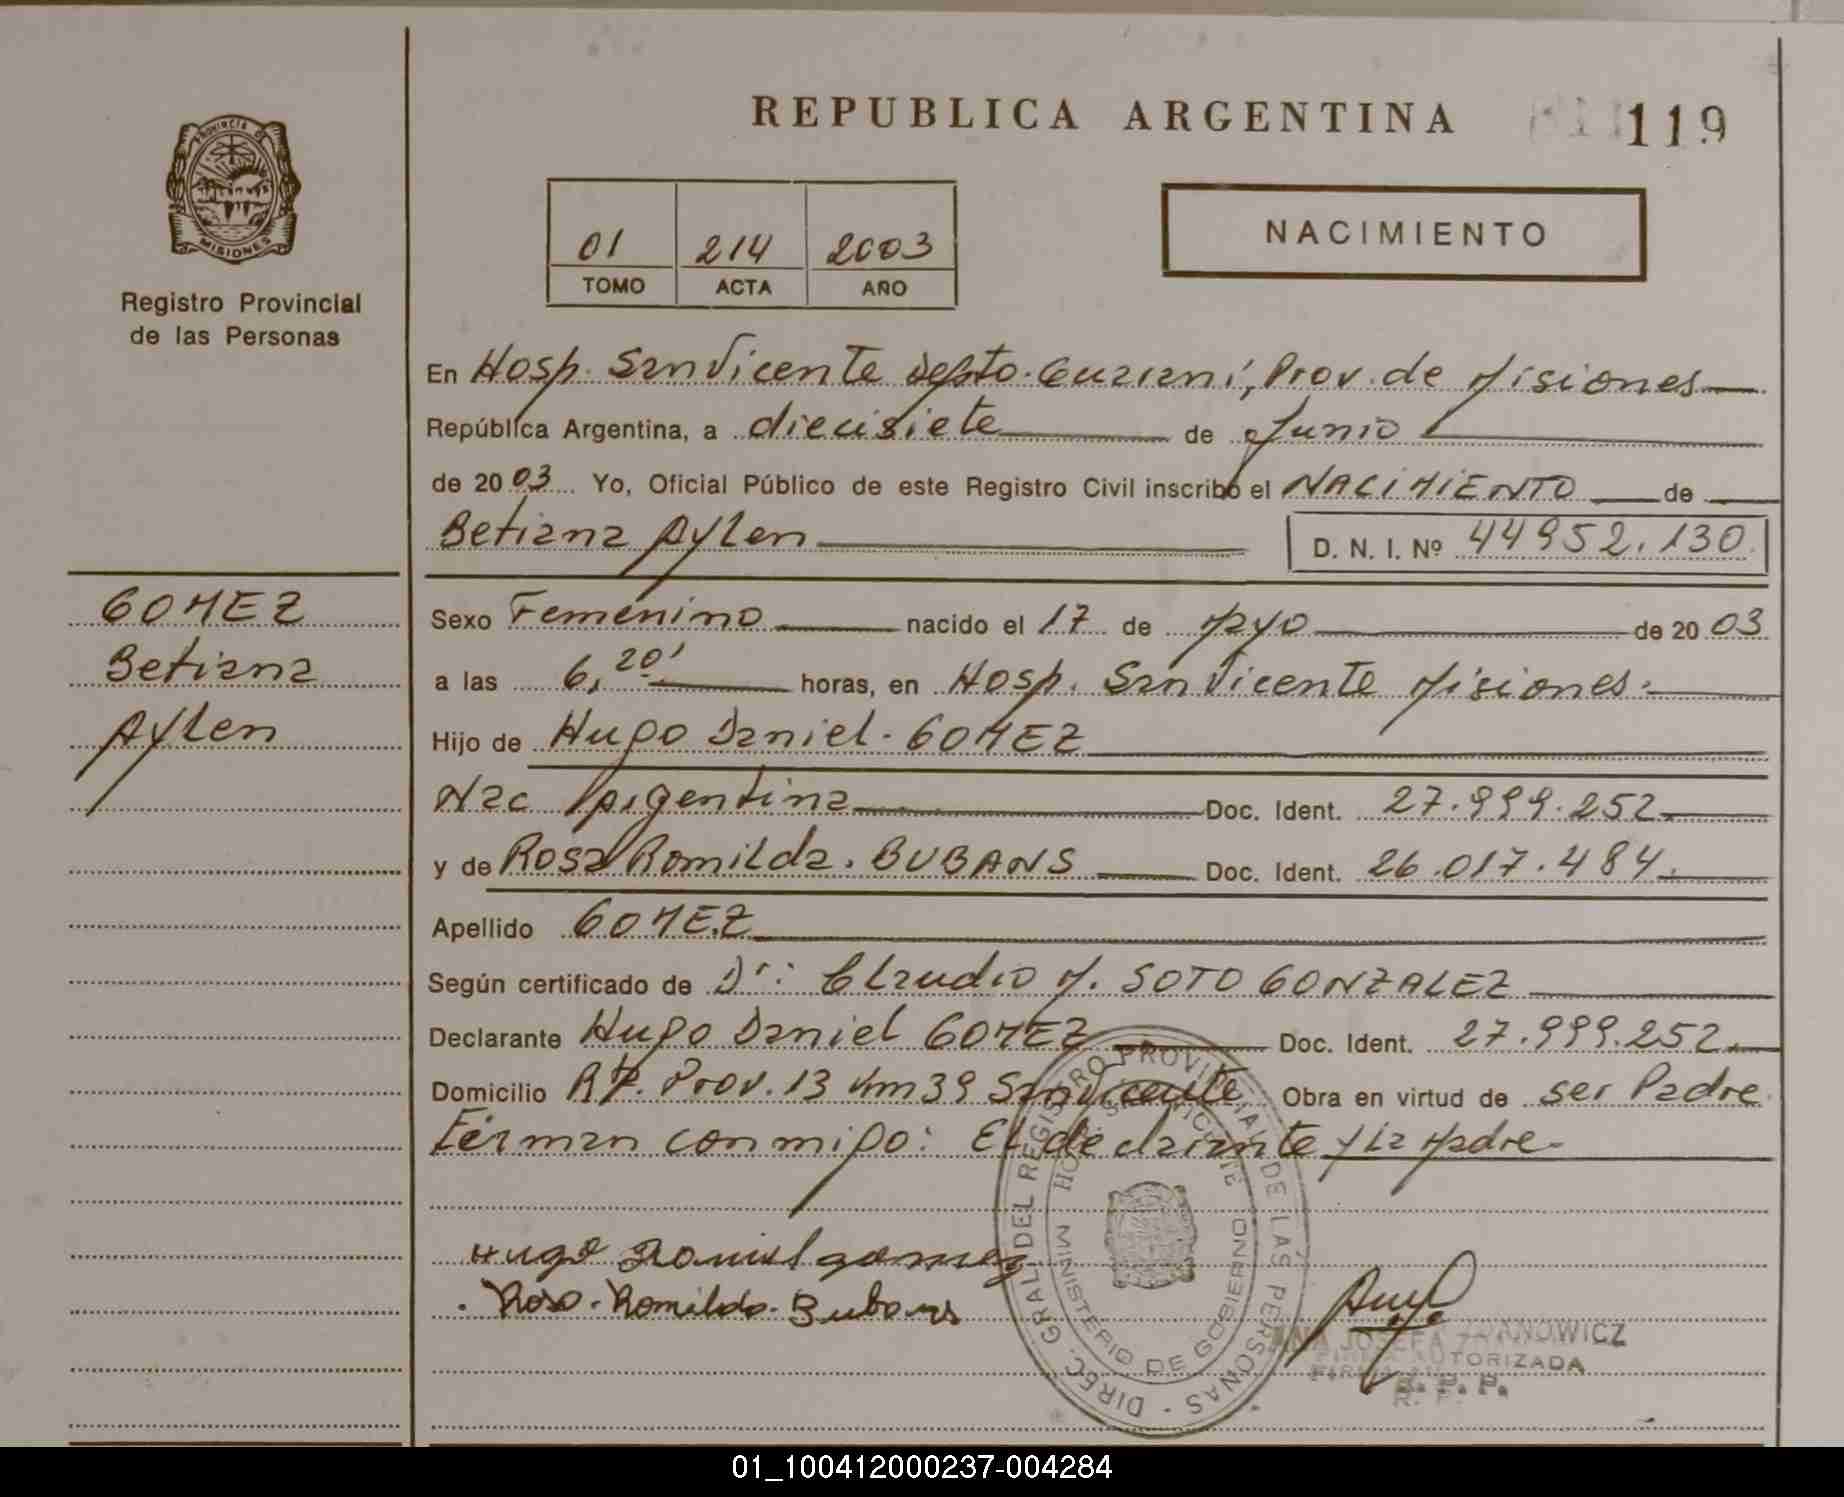 REPUBLICA ARGENTINA
119
PROVINCIA DE
MISIONES
Registro Provincial
de las Personas
01 214 2003
TOMO ACTA AÑO
NACIMIENTO
En Hosp. San Vicente Depto. Guaraní, Prov. de Misiones
República Argentina, a diecisiete de Junio
de 2003 Yo, Oficial Público de este Registro Civil inscribo el NACIMIENTO de
Betiana Aylen
D. N. I. Nº 44952.130
GOMEZ
Betiana
Aylen
Sexo Femenino nacido el 17 de Mayo de 2003
a las 6,20' horas, en Hosp. San Vicente Misiones.
Hijo de Hugo Daniel. GOMEZ
Nac Argentina Doc. Ident. 27.999.252
y de Rosa Romilda. BUBANS Doc. Ident. 26.017.484.
Apellido GOMEZ
Según certificado de Dr: Claudio M. SOTO GONZALEZ
Declarante Hugo Daniel GOMEZ Doc. Ident. 27.999.252
Domicilio Rta. Prov. 13 Km 39 San Vicente Obra en virtud de ser Padre
Firman conmigo: El declarante y la Madre.
Hugo Daniel gomez
Rosa. Romilda. Bubans
DIREC. GRAL DEL REGISTRO PROVINCIAL DE LAS PERSONAS
MINISTERIO DE GOBIERNO
ANA JOSEFA
FIRMA AUTORIZADA
R. P. P.
01_100412000237-004284